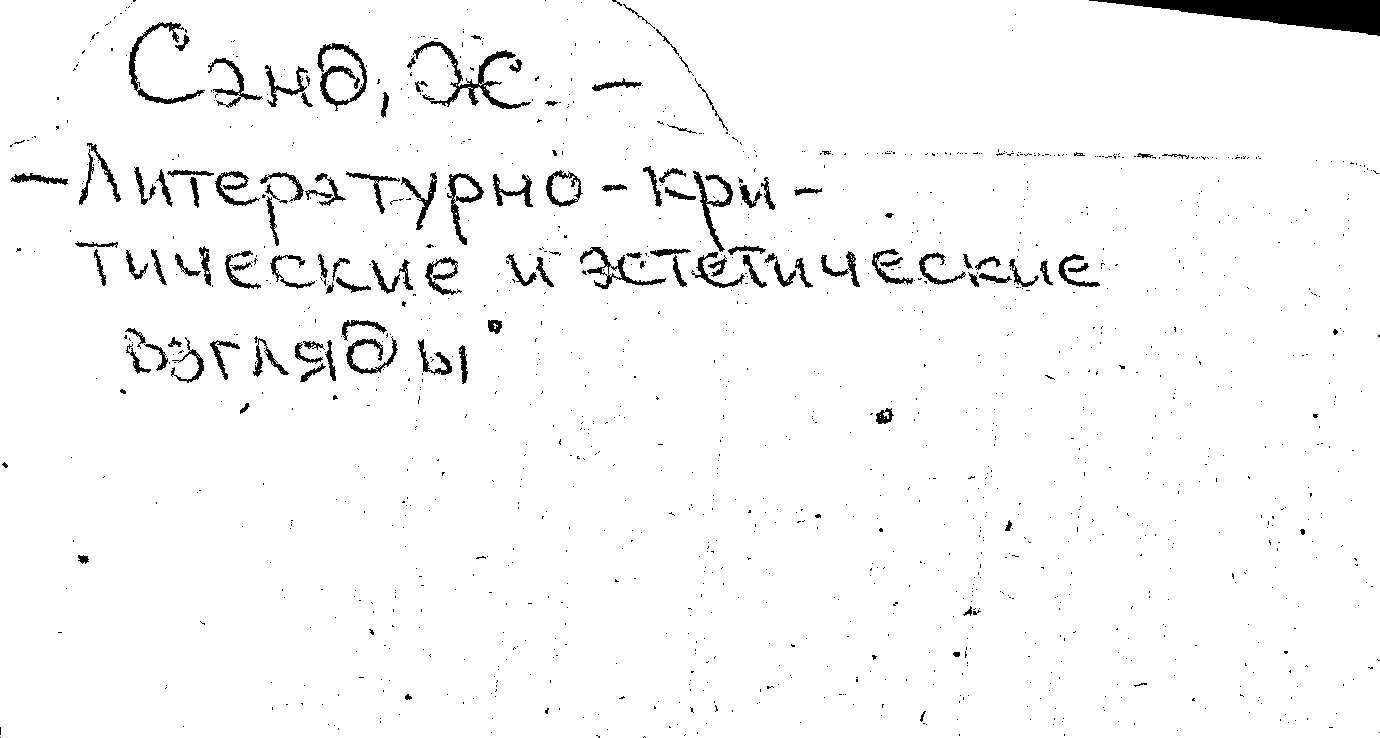 Санд, Ж. –
– Литературно-кри-
тические и эстетические
взгляды